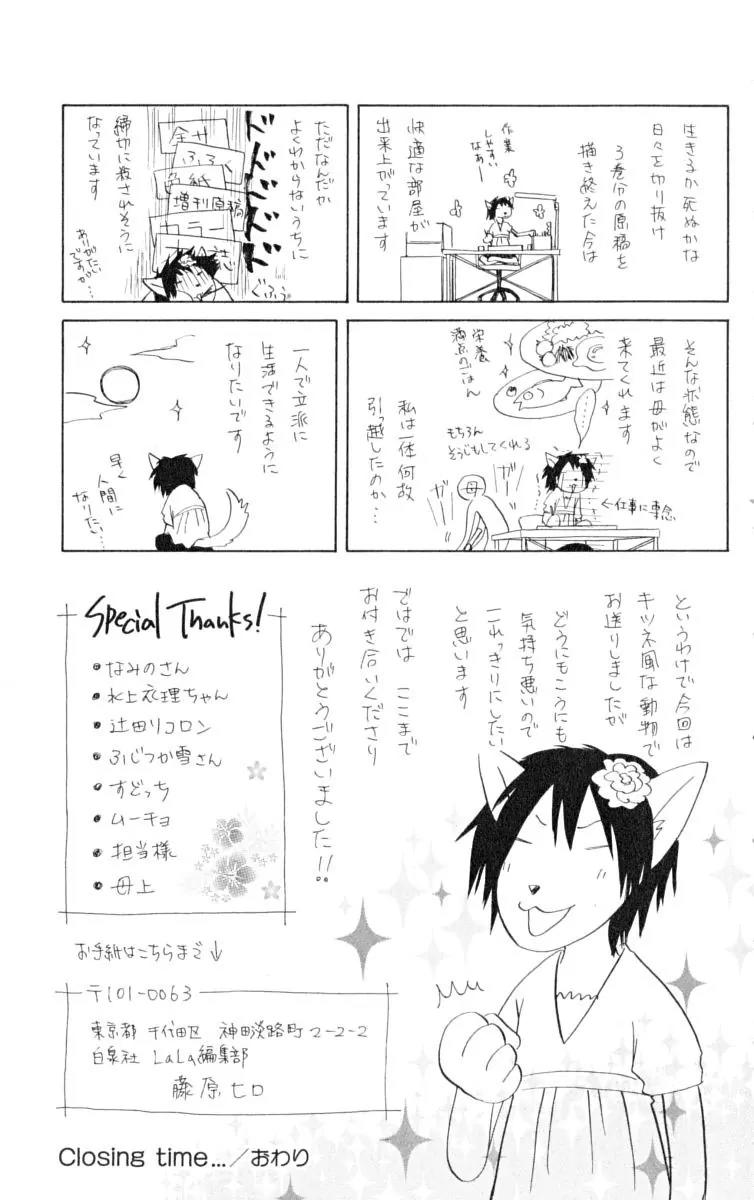 生きるか死ぬかな
日々を切り抜け
3巻分の原稿を
描き終えた今は
快適な部屋が
出来上がっています
作業
しやすい
なぁー
ただなんだか
よくわからないうちに
締切に殺されそうに
なっています
ありがたい
ですが…
ドドドドド
全サ
ふろく
色紙
増刊原稿
カラー
本誌
ぐふっ
そんな状態なので
最近は母がよく
来てくれます
栄養
満点のごはん
もちろん
そうじもしてくれる
私は一体何故
引っ越したのか…
ガー
ガー
母
←仕事に専念
一人で立派に
生活できるように
なりたいです
早く
人間に
なりたい…
というわけで今回は
キツネ風な動物で
お送りしましたが
どうにもこうにも
気持ち悪いので
これっきりにしたい
と思います
ではでは ここまで
お付き合いくださり
ありがとうございました!!
Special Thanks!
• なみのさん
• 水上衣理ちゃん
• 辻田リコロン
• ふじつか雪さん
• すどっち
• ムーチョ
• 担当様
• 母上
お手紙はこちらまで↓
〒101-0063
東京都 千代田区 神田淡路町2-2-2
白泉社 LaLa編集部
藤原ヒロ
Closing time…／おわり